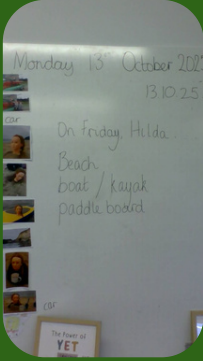 Monday 13th October 202
13.10.25
car
On Friday, Hilda...
Beach
boat / kayak
paddle board
car
The Power of
YET